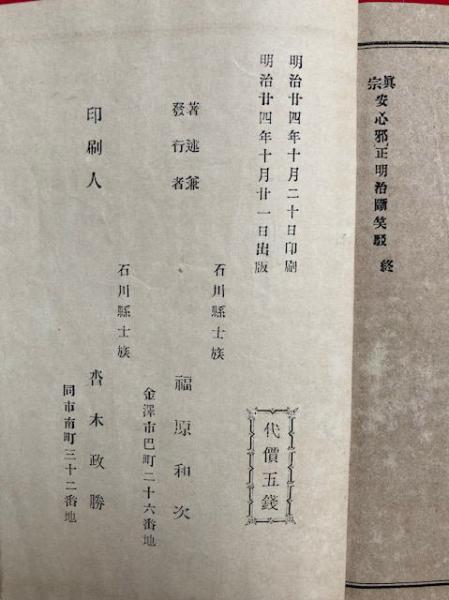 眞宗安心邪正明治斷笑髮 終
明治廿四年十月二十日印刷
明治廿四年十月廿一日出版
代價五錢
石川縣士族
著述兼發行者
福原和次
金澤市巴町二十六番地
石川縣士族
印刷人
沓木政勝
同市南町三十二番地